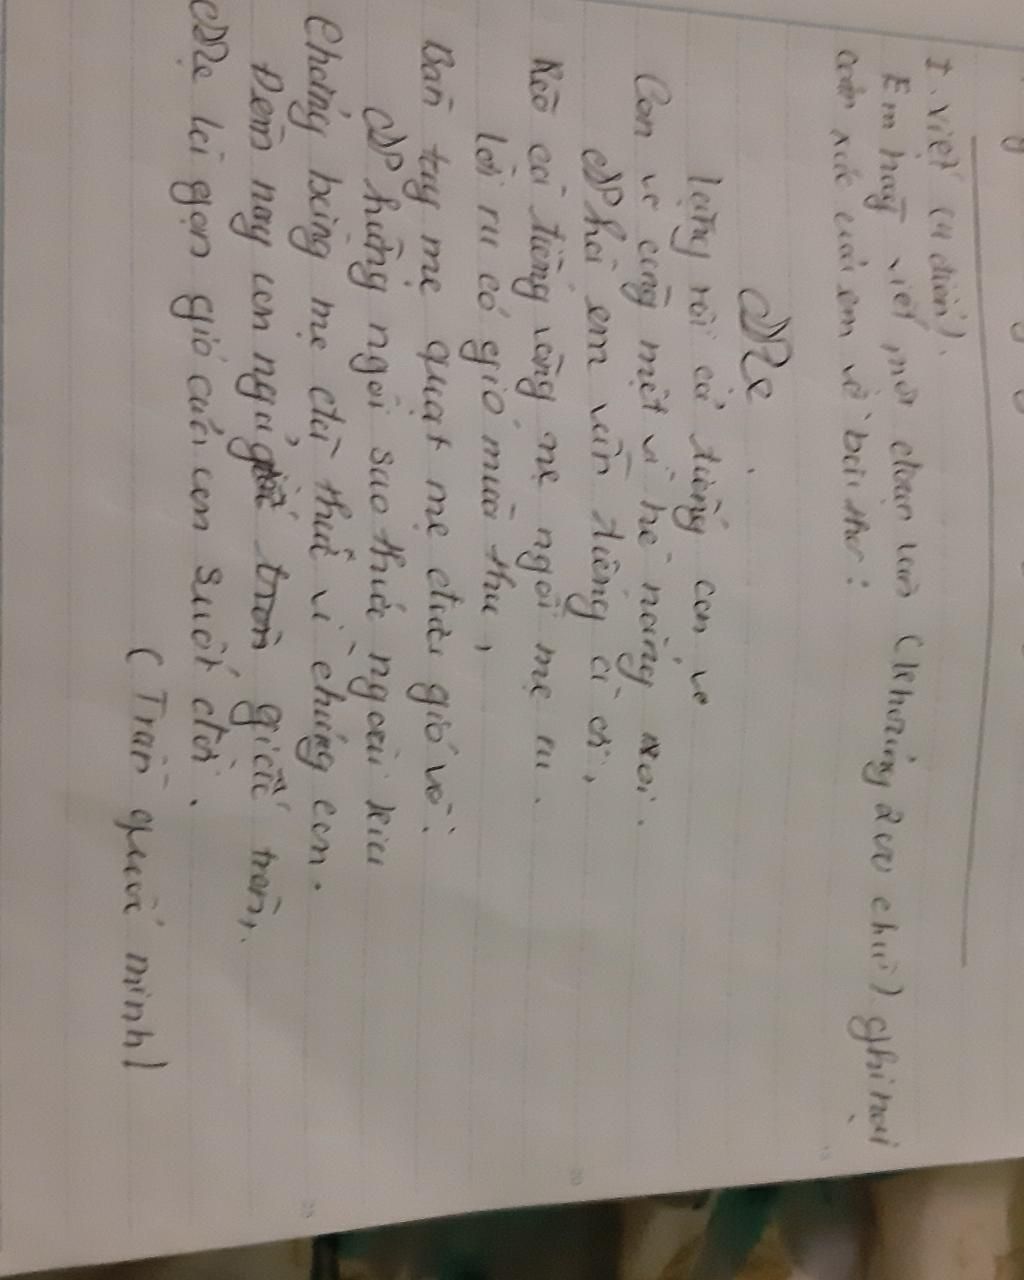 I. Viết (4 điểm).
Em hãy viết một đoạn văn (khoảng 200 chữ) ghi lại
cảm xúc của em về bài thơ:
Mẹ
Lặng rồi cả tiếng con ve
Con ve cũng mệt vì hè nắng oi.
Nhà em vẫn tiếng ạ ời,
Kẽo cà tiếng võng mẹ ngồi mẹ ru.
Lời ru có gió mùa thu,
Bàn tay mẹ quạt mẹ đưa gió về.
Những ngôi sao thức ngoài kia
Chẳng bằng mẹ đã thức vì chúng con.
Đêm nay con ngủ giấc tròn,
Mẹ là ngọn gió của con suốt đời.
(Trần quốc minh)